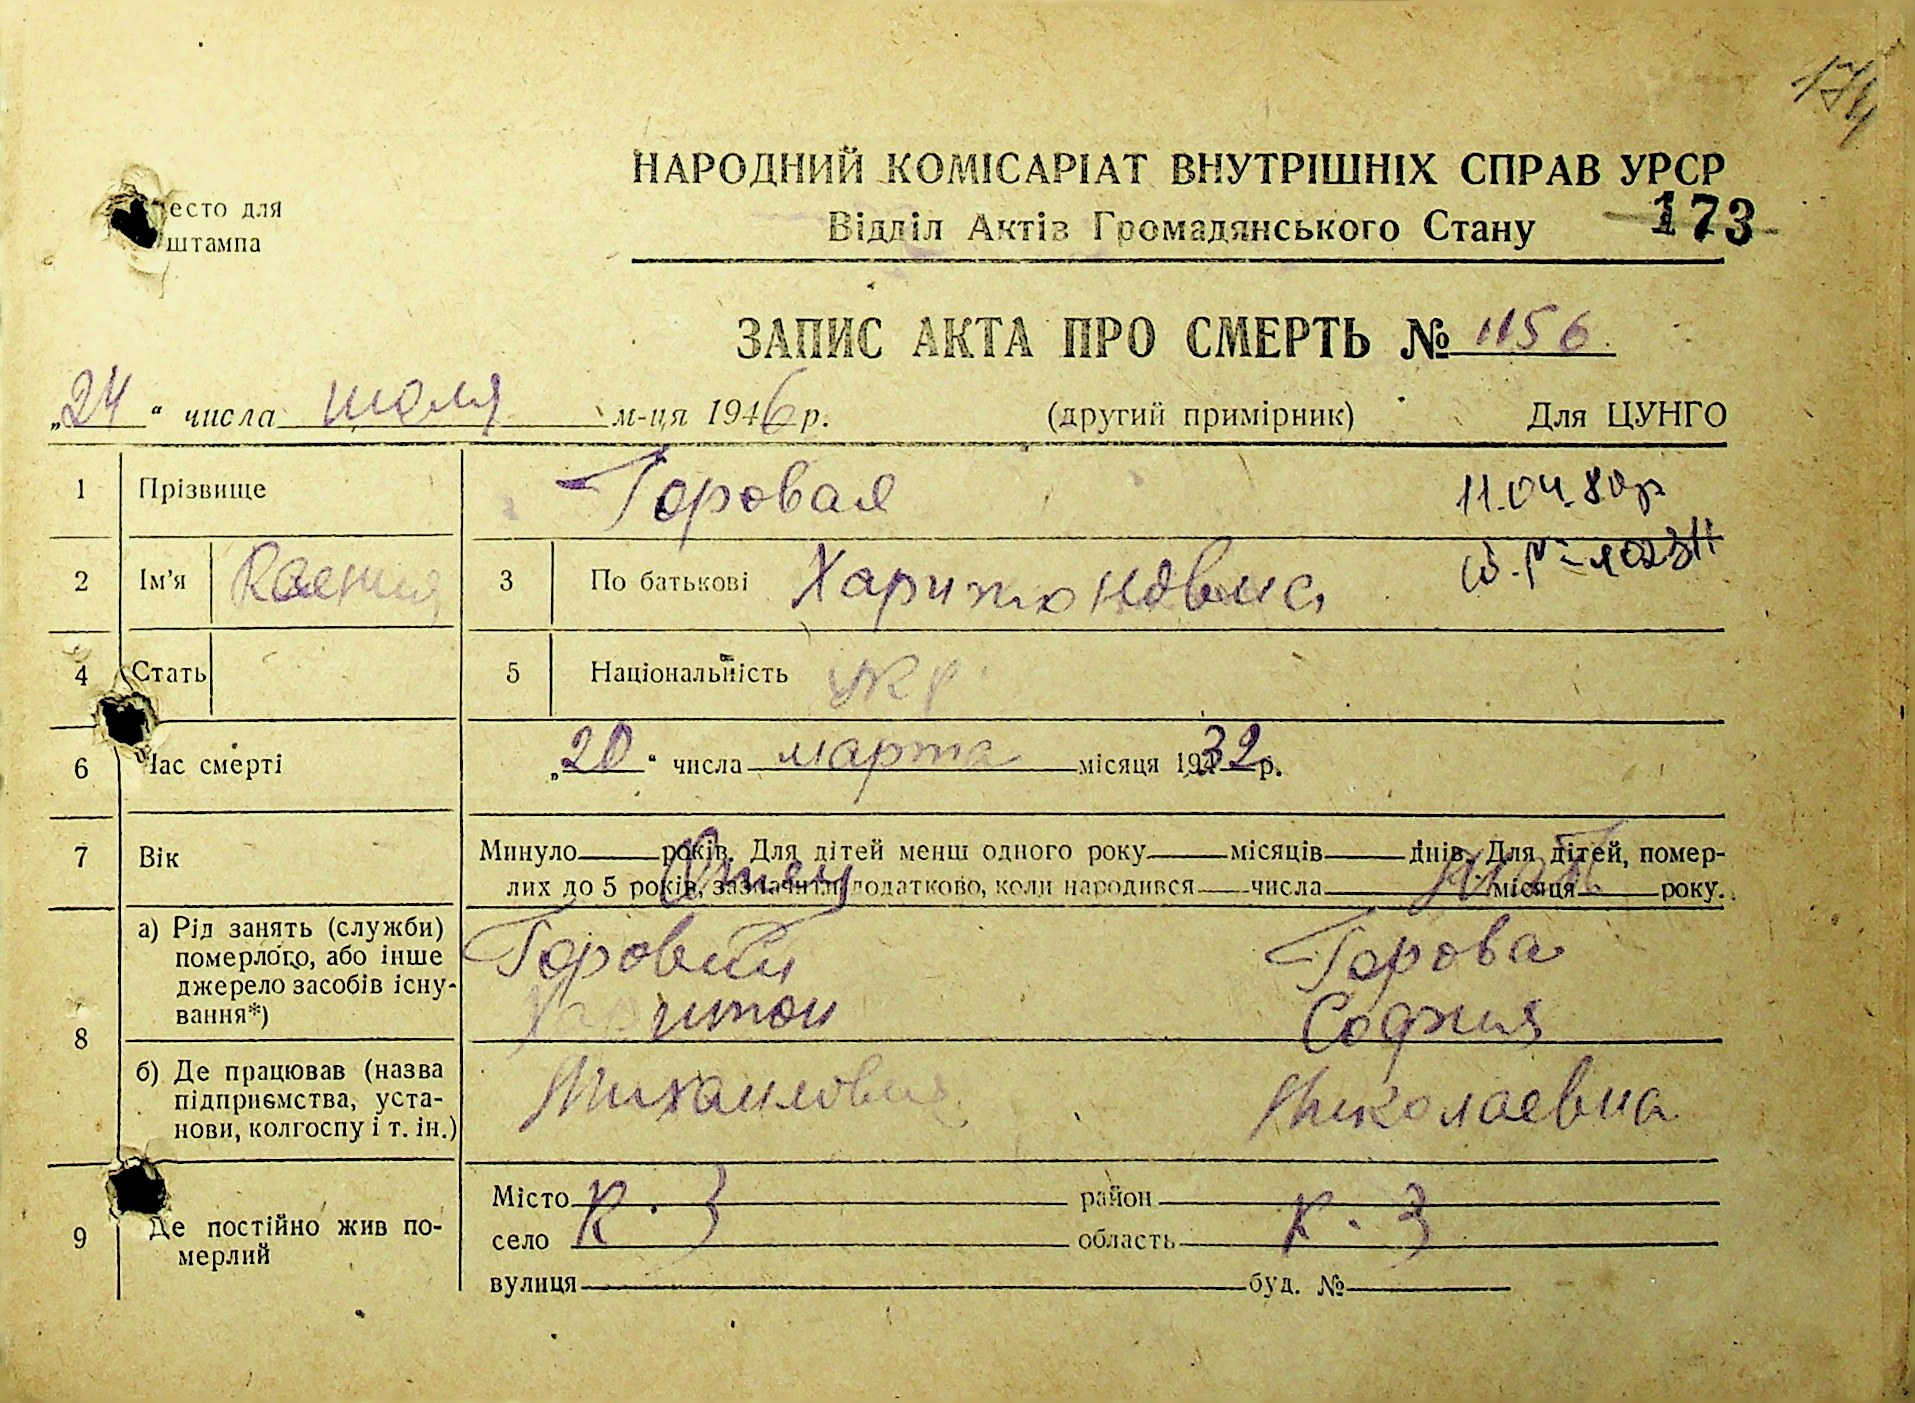 174
НАРОДНИЙ КОМІСАРІАТ ВНУТРІШНІХ СПРАВ УРСР
есто для штампа
Відділ Актів Громадянського Стану 173
ЗАПИС АКТА ПРО СМЕРТЬ № 1156
„24“ числа июля м-ця 1946 р. (другий примірник) Для ЦУНГО
1 Прізвище Горовая 11.04.80р
2 Ім'я Ксения 3 По батькові Харитоновна
4 Стать 5 Національність укр.
6 Час смерті „20“ числа марта місяця 1932 р.
7 Вік Минуло років. Для дітей менш одного року місяців днів. Для дітей, помер-
лих до 5 років, зазначити додатково, коли народився числа місяця року.
Отец Мать
8 а) Рід занять (служби) померлого, або інше джерело засобів існу-вання*)
Горовий Горова
Харитон София
б) Де працював (назва підприємства, уста-нови, колгоспу і т. ін.)
Михайлович Николаевна
9 Де постійно жив по-мерлий
Місто К. З район К. З
село область
вулиця буд. №